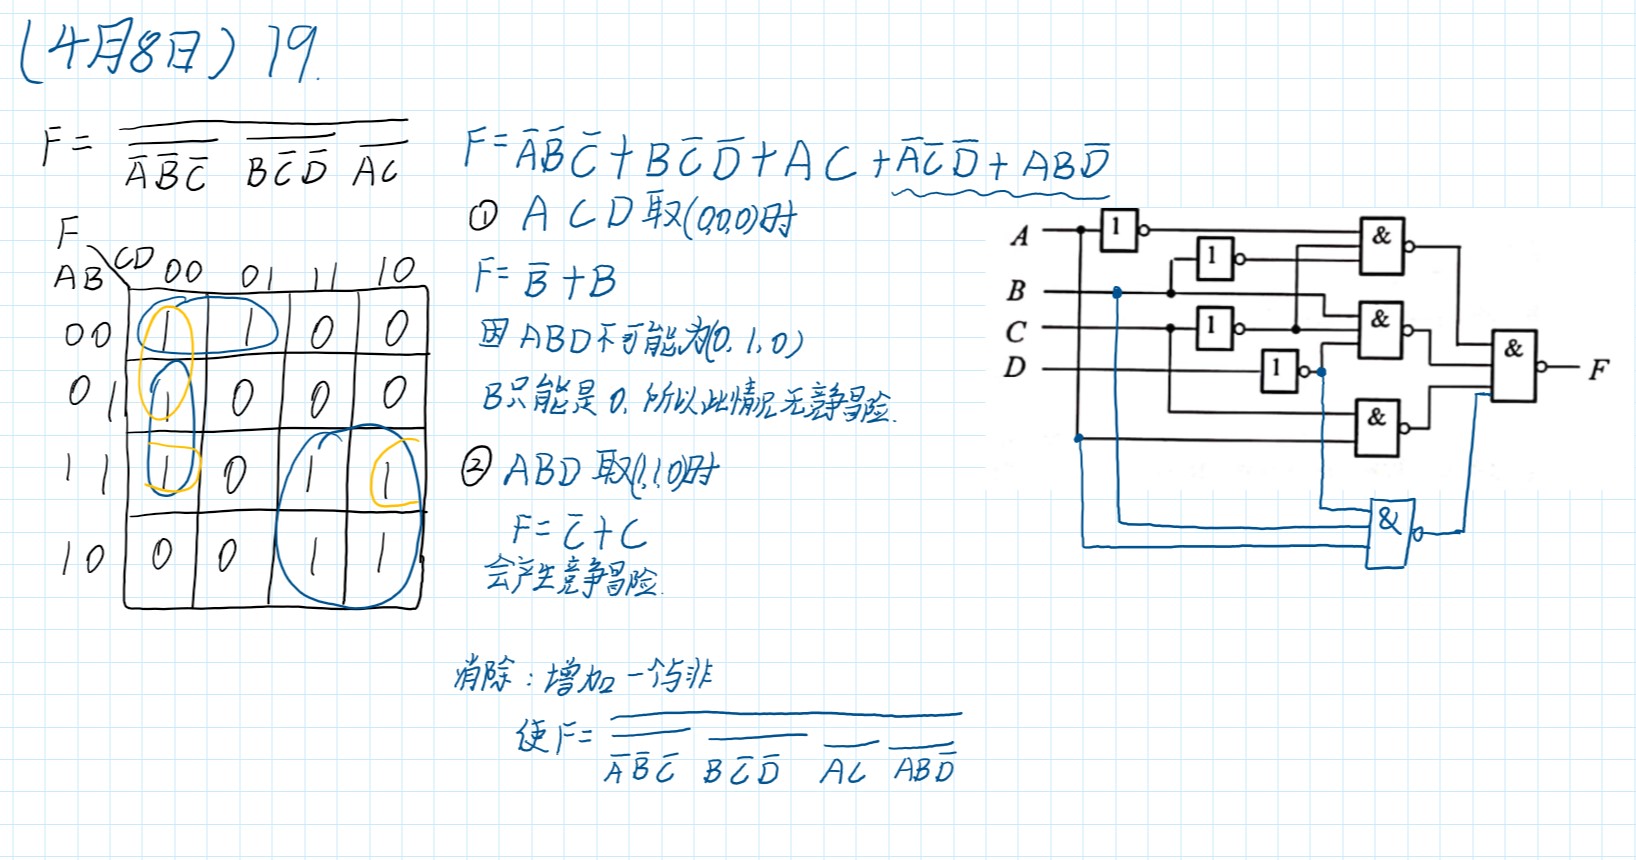 (4月8日) 19.
F = \overline{\overline{\overline{A}\,\overline{B}\,\overline{C}}\;\overline{B\,\overline{C}\,\overline{D}}\;\overline{AC}}
F
CD 00 01 11 10
AB
00 1 1 0 0
01 1 0 0 0
11 1 0 1 1
10 0 0 1 1
F = \overline{A}\,\overline{B}\,\overline{C} + B\overline{C}\,\overline{D} + AC + \overline{A}\,\overline{C}\,\overline{D} + AB\overline{D}
① A C D 取(0,0,0)时
F = \overline{B} + B
因 ABD不可能为(0,1,0)
B只能是0,所以此情况无竞争冒险.
② ABD 取(1,1,0)时
F = \overline{C} + C
会产生竞争冒险.
消除:增加一个与非
使F = \overline{\overline{\overline{A}\,\overline{B}\,\overline{C}}\;\overline{B\,\overline{C}\,\overline{D}}\;\overline{AC}\;\overline{AB\overline{D}}}
A 1 &
1
B
C 1 &
D 1 & F
&
&